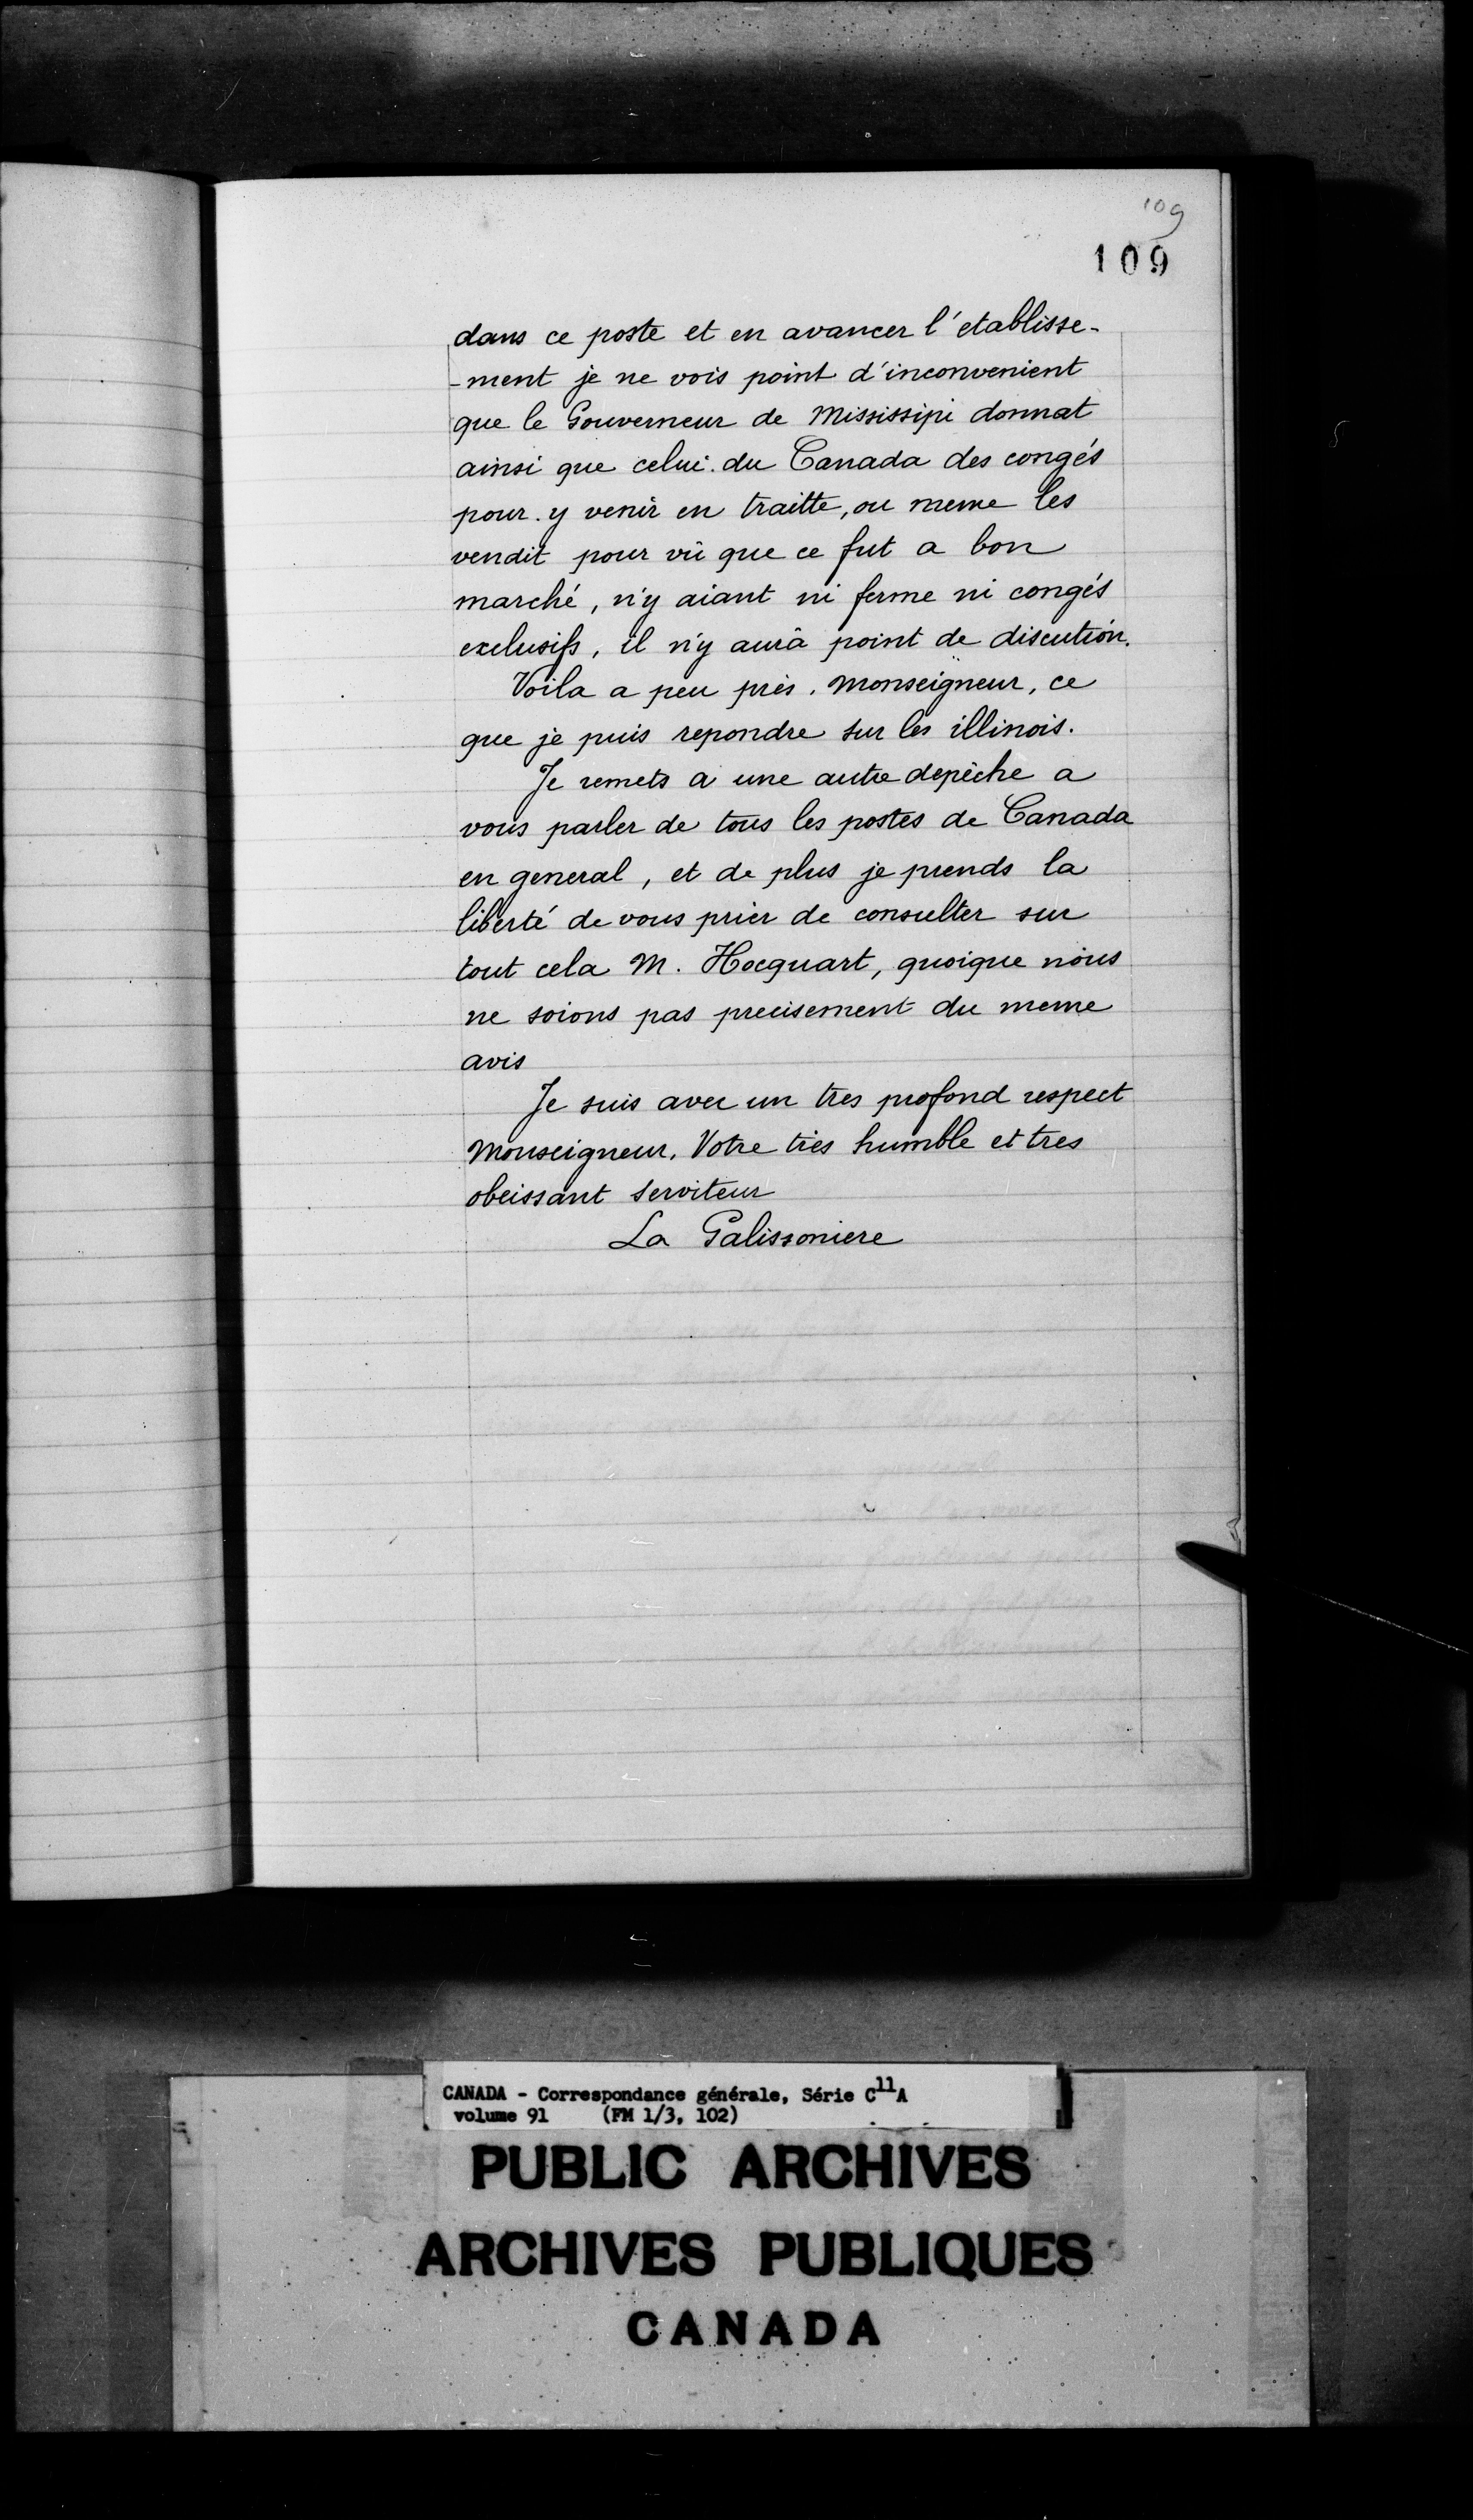 109
109
dans ce poste et en avancer l'etablisse-
-ment je ne vois point d'inconvenient
que le Gouverneur de Mississipi donnat
ainsi que celui du Canada des congés
pour y venir en traitte, ou meme les
vendit pour vû que ce fut a bon
marché, n'y aiant ni ferme ni congés
exclusifs, il n'y aurâ point de discution.
Voila a peu près, Monseigneur, ce
que je puis repondre sur les illinois.
Je remets a une autre depêche a
vous parler de tous les postes de Canada
en general, et de plus je prends la
liberté de vous prier de consulter sur
tout cela M. Hocquart, quoique nous
ne soions pas precisement du meme
avis
Je suis avec un tres profond respect
Monseigneur, Votre très humble et tres
obeissant Serviteur
La Galissoniere
CANADA - Correspondance générale, Série C11A
volume 91 (FM 1/3, 102)
PUBLIC ARCHIVES
ARCHIVES PUBLIQUES
CANADA